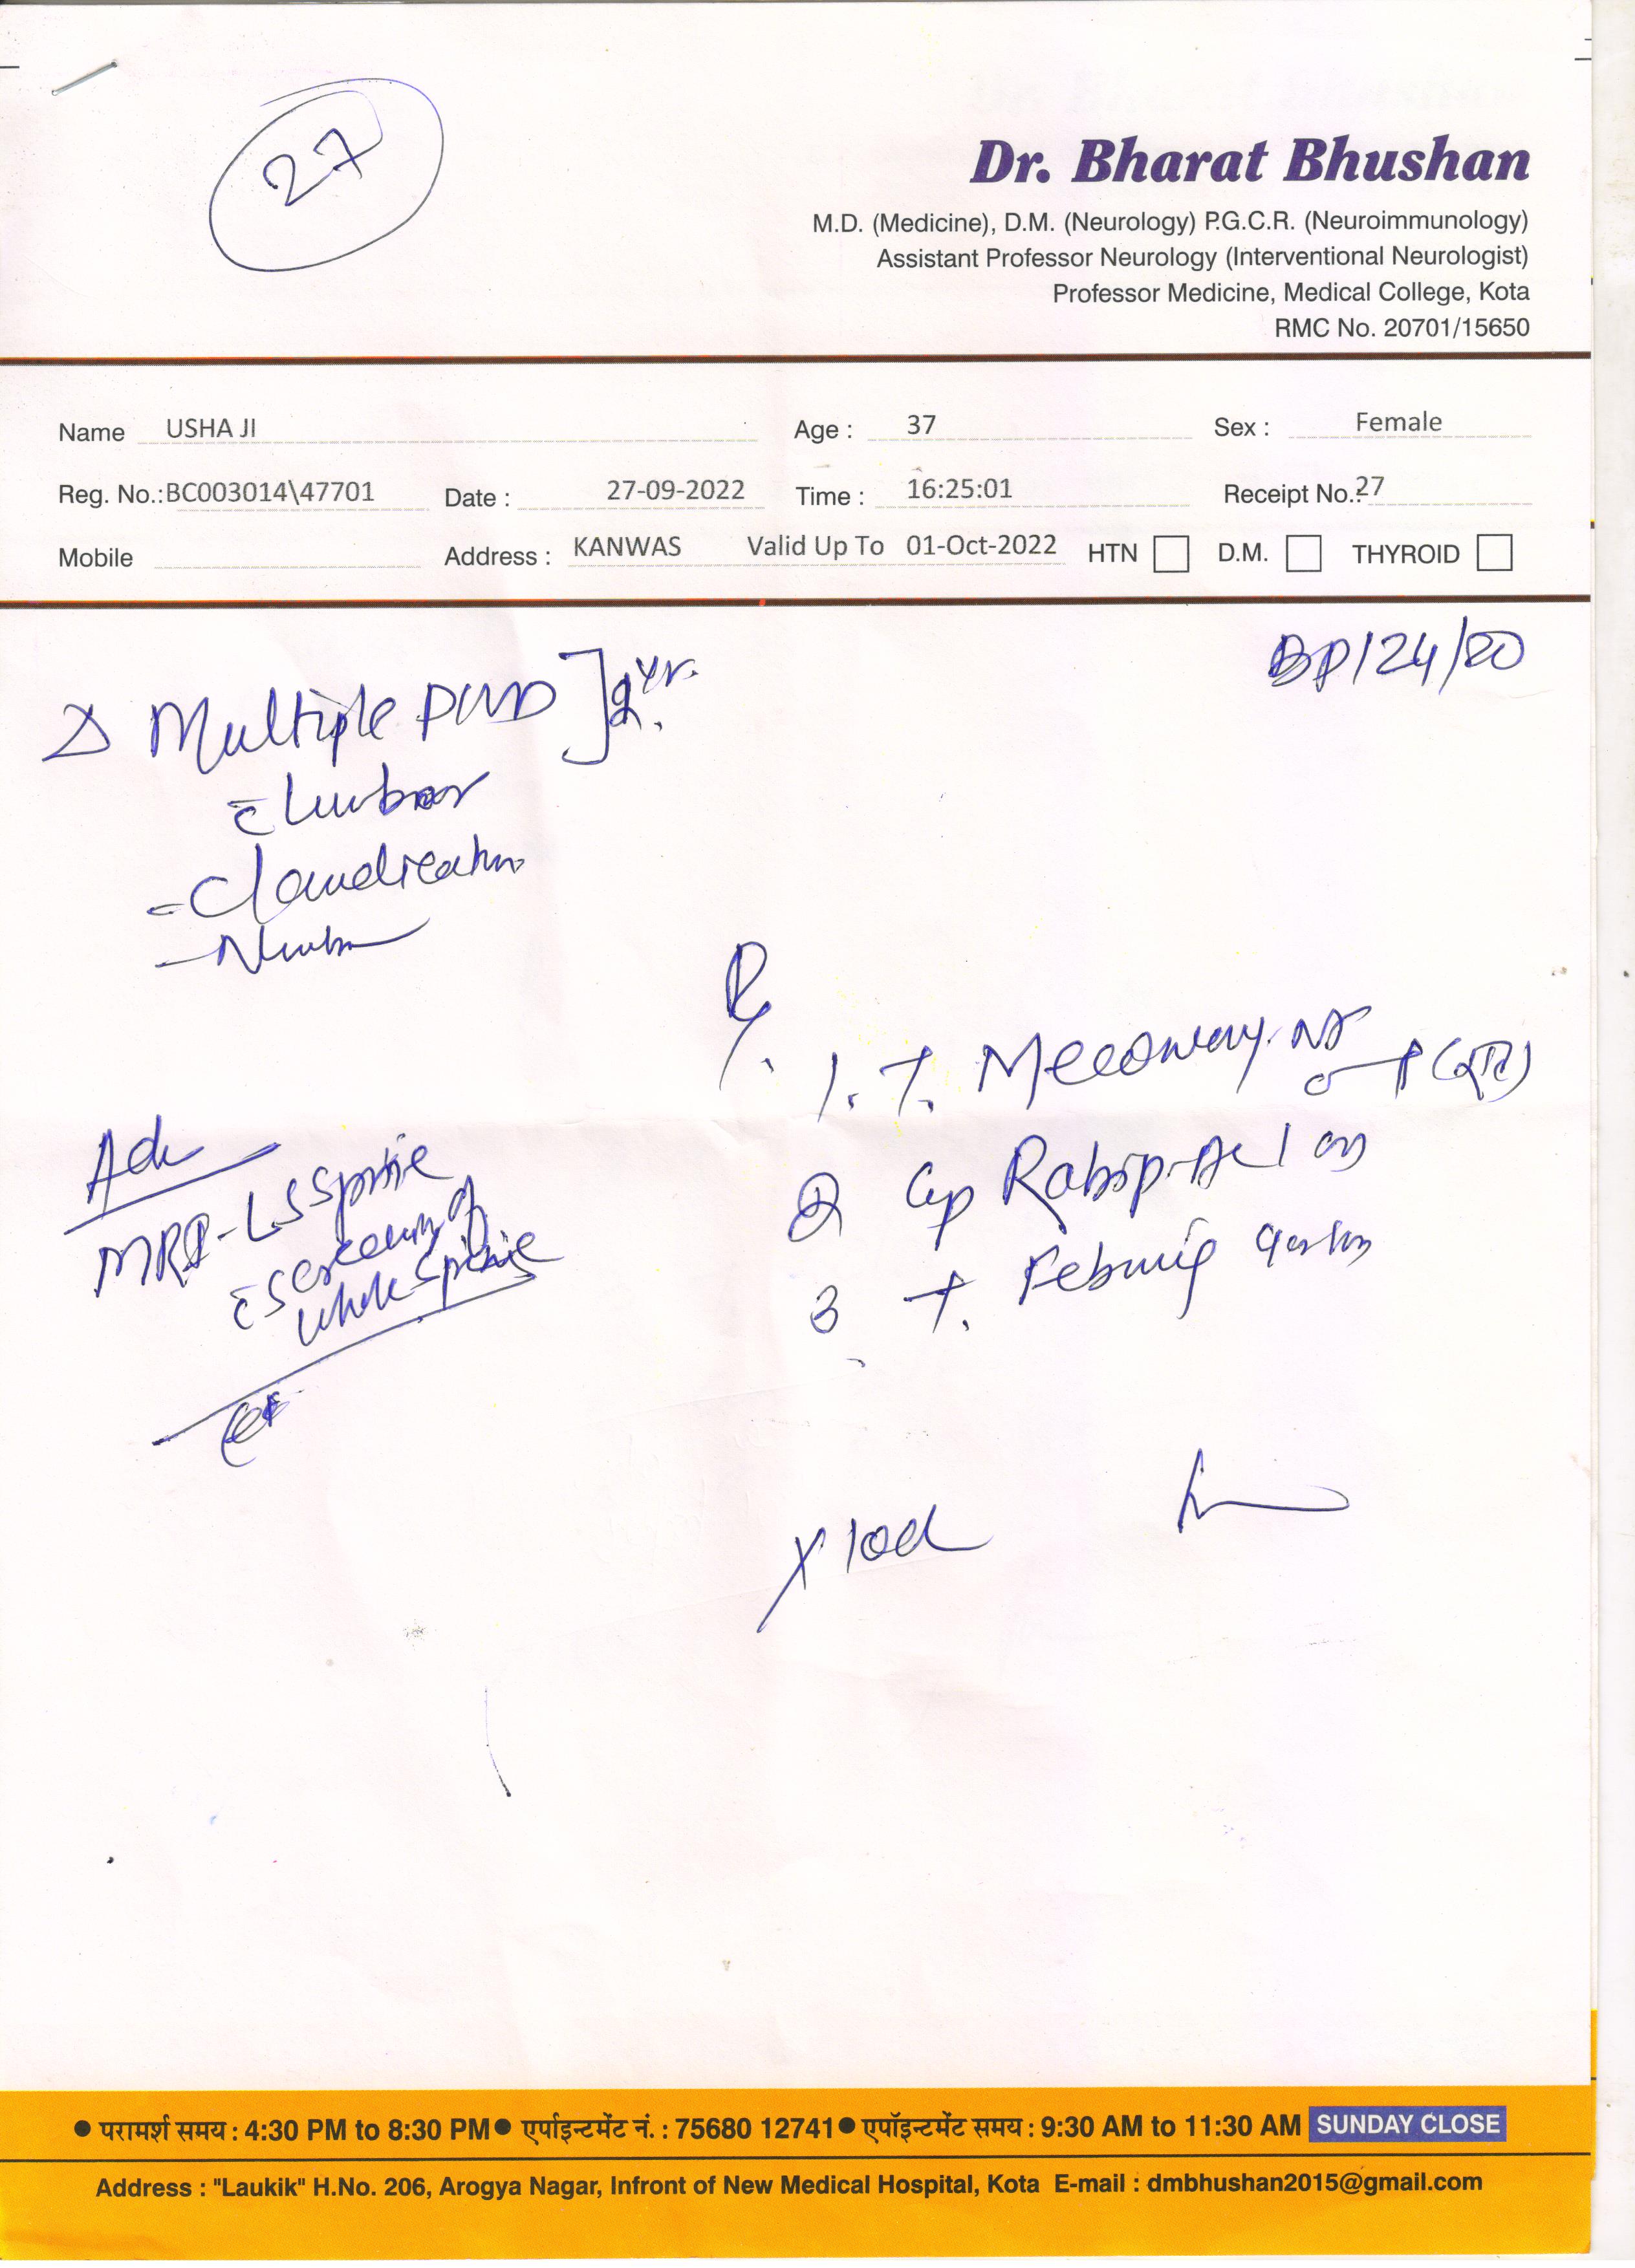 27
Dr. Bharat Bhushan
M.D. (Medicine), D.M. (Neurology) P.G.C.R. (Neuroimmunology)
Assistant Professor Neurology (Interventional Neurologist)
Professor Medicine, Medical College, Kota
RMC No. 20701/15650
Name USHA JI Age : 37 Sex : Female
Reg. No.:BC003014\47701 Date : 27-09-2022 Time : 16:25:01 Receipt No.:27
Mobile Address : KANWAS Valid Up To 01-Oct-2022 HTN D.M. THYROID
BP 124/80
Δ Multiple PIVD ] 2 yr.
c̄ Lumbar
- Claudication
Rx.
1. T. NT
(रात)
2 Cap
3 T.
Adv
MRI - LS Spine
c̄ Screening of
whole Spine
x 10d
● परामर्श समय : 4:30 PM to 8:30 PM ● एपॉइन्टमेंट नं. : 75680 12741 ● एपॉइन्टमेंट समय : 9:30 AM to 11:30 AM SUNDAY CLOSE
Address : "Laukik" H.No. 206, Arogya Nagar, Infront of New Medical Hospital, Kota E-mail : dmbhushan2015@gmail.com